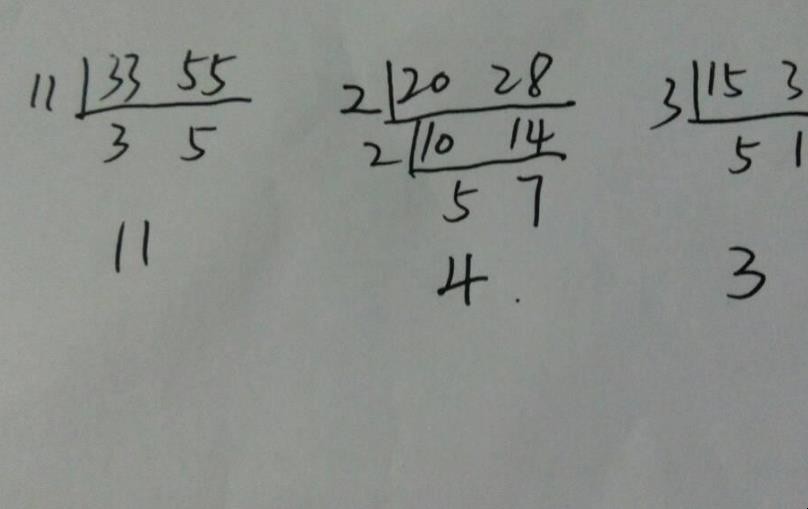 11 33 55
3 5
11
2 20 28
2 10 14
5 7
4.
3 15 3
5 1
3